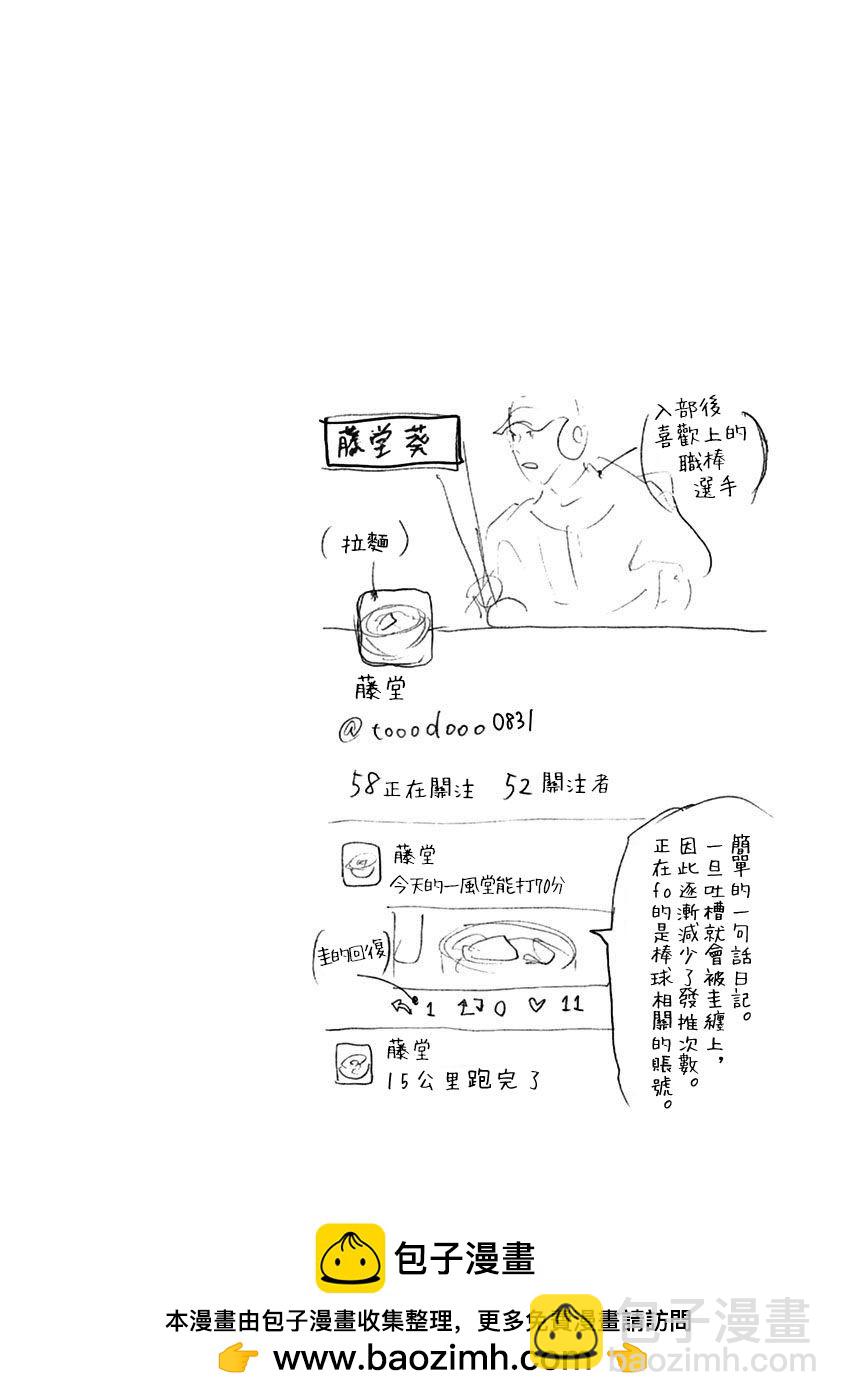 藤堂葵
入部後
喜歡上的
職棒
選手
(拉麵)
藤堂
@tooodooo0831
58正在關注 52關注者
藤堂
今天的一風堂能打70分
(圭的回復)
1 0 11
簡單的一句話日記。
一旦吐槽就會被圭纏上，
因此逐漸減少了發推次數。
正在fo的是棒球相關的賬號。
藤堂
15公里跑完了
包子漫畫
本漫畫由包子漫畫收集整理，更多免費漫畫請訪問
👉 www.baozimh.com 👈
包子漫畫
baozimh.com